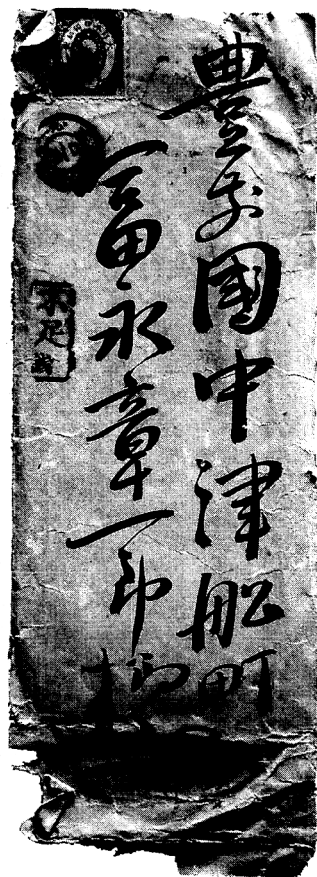 豊前國中津船町
富永章一郎様
不足